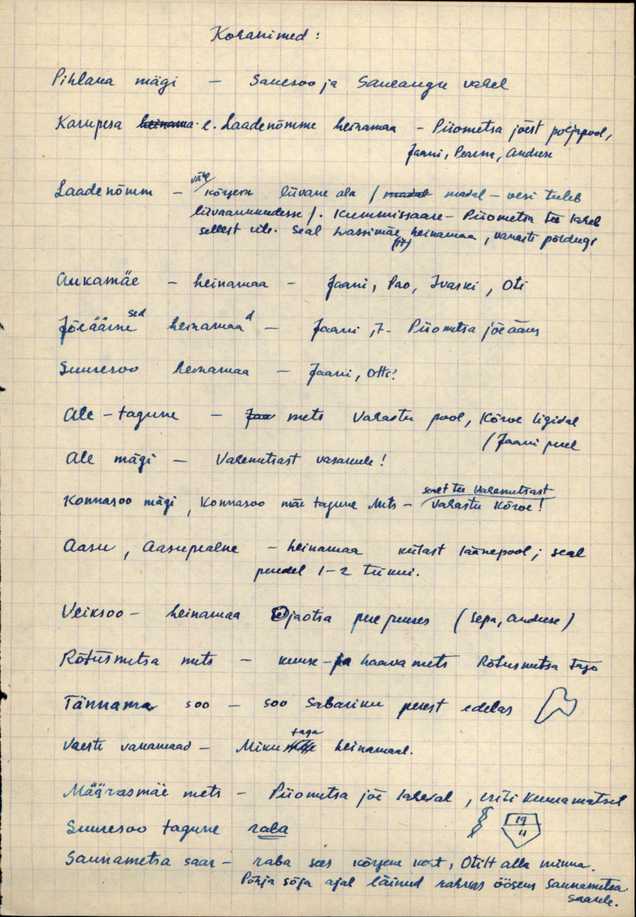 Kohanimed:
Pihlaka mägi — Sauesoo ja Saueaugu vahel
Karupesa heinamaa e. Laadenõmme heinamaa — Piiometsa jõest põhjapool,
Jaani, Peremi, Andruse
Laadenõmm — väike kõrgem liivane ala / madal madal — vesi tuleb
liivaaukudesse /. Kummissaare - Piiometsa tee läheb
sellest üle. Seal Lassimäe heinamaa, vanasti põldugi
Aukamäe — heinamaa — Jaani, Pao, Ivaski, Oti
Jõeäärne sed heinamaad — Jaani, J - Piiometsa jõe ääres
Suuresoo heinamaa — Jaani, Otti!
Ale-tagune — mets Vahastu pool, Kõrve ligidal
/ Jaani puel
Ale mägi — Vahemetsast vasakule!
Konnasoo mägi, Konnasoo mäe tagune mets — sealt tee Vahemetsast
Vahastu Kõrve!
Aasu, Aasupealne — heinamaa külast läänepool; seal
peredel 1-2 tükki.
Veiksoo — heinamaa Ojaotsa pere juures (Sepa, Andruse)
Rõtusmetsa mets — kuuse- ja haavamets Rõtusmetsa taga
Tännama soo — soo Sabariku perest edelas
Vaeste vanamaad — Miku taga heinamaal.
Määrasmäe mets — Piiometsa jõe lähedal, eriti kuusemetsad
Suuresoo tagune raba
19
11
Saunametsa saar — raba sees kõrgem koht, Otilt alla minna.
Põhja sõja ajal läinud rahvas ööseks Saunametsa
saarele.